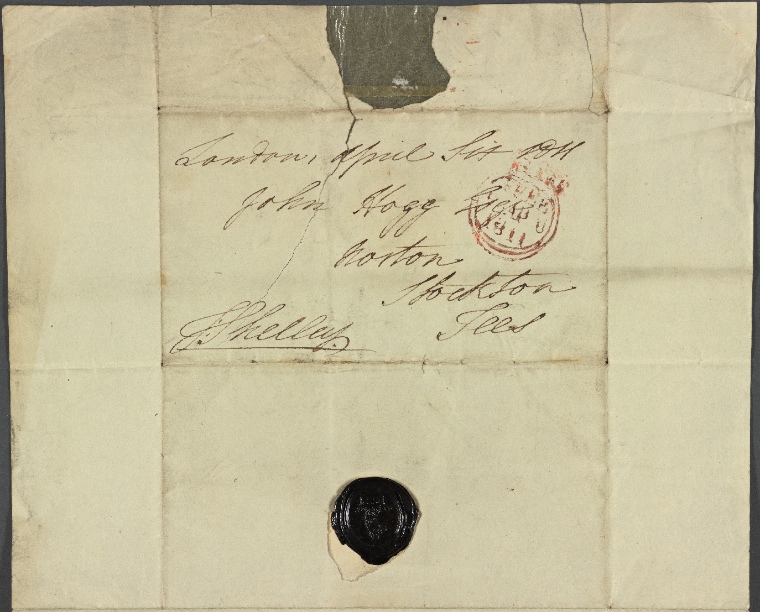 London, April Six 1811
John Hogg Esqr
Norton
Stockton
Tees
T. Shelley.
FREE
1811